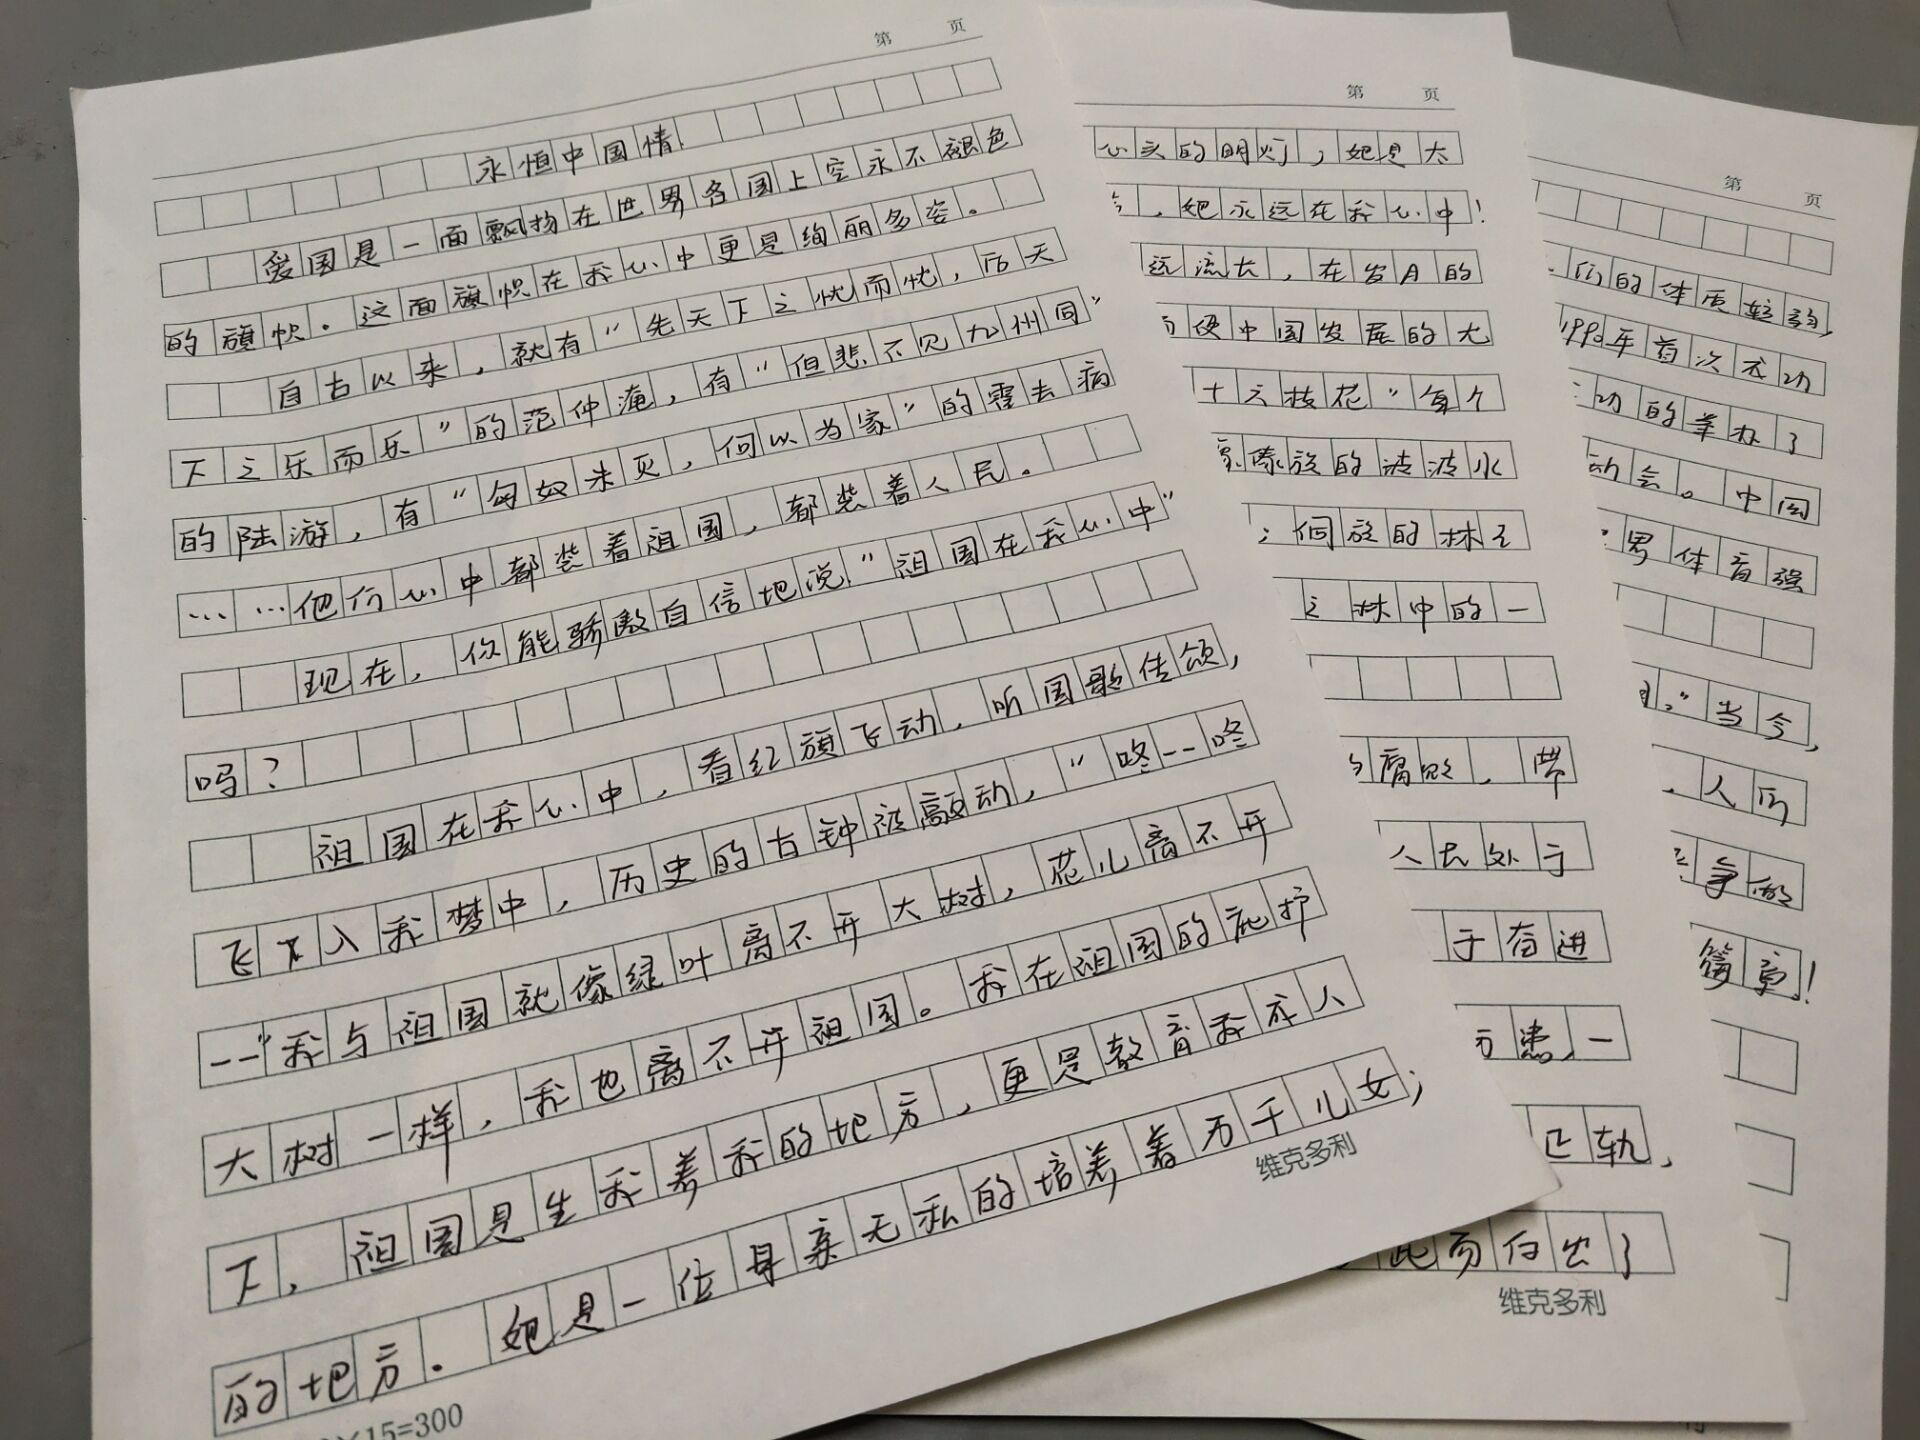 第 页
永恒中国情
爱国是一面飘扬在世界各国上空永不褪色
的旗帜。这面旗帜在我心中更是绚丽多姿。
自古以来，就有“先天下之忧而忧，后天
下之乐而乐”的范仲淹，有“但悲不见九州同”
的陆游，有“匈奴未灭，何以为家”的霍去病
……他们心中都装着祖国，都装着人民。
现在，你能骄傲自信地说“祖国在我心中”
吗？
祖国在我心中，看红旗飞动，听国歌传颂，
飞入我梦中，历史的古钟被敲动，“咚--咚
--”我与祖国就像绿叶离不开大树，花儿离不开
大树一样，我也离不开祖国。我在祖国的庇护
下，祖国是生我养我的地方，更是教育我成人
的地方。她是一位母亲无私的培养着万千儿女；
维克多利
×15=300
第 页
心头的明灯，她是太
，她永远在我心中！
远流长，在岁月的
使中国发展的尤
十六枝花”每个
傣族的泼泼水
；侗族的林王
之林中的一
腐败，带
人民处于
于奋进
方患，一
正轨，
此而付出了
维克多利
第 页
们的体质较弱，
年首次成功
功的举办了
动会。中国
界体育强
。”当今，
，人们
争做
篇章！